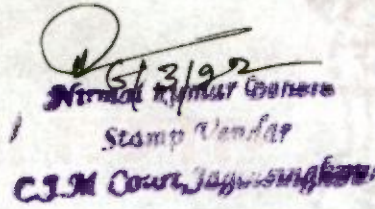 5/3/92
Nirmal Kumar
Stamp Vendar
C.J.M Court, Jagatsinghpur